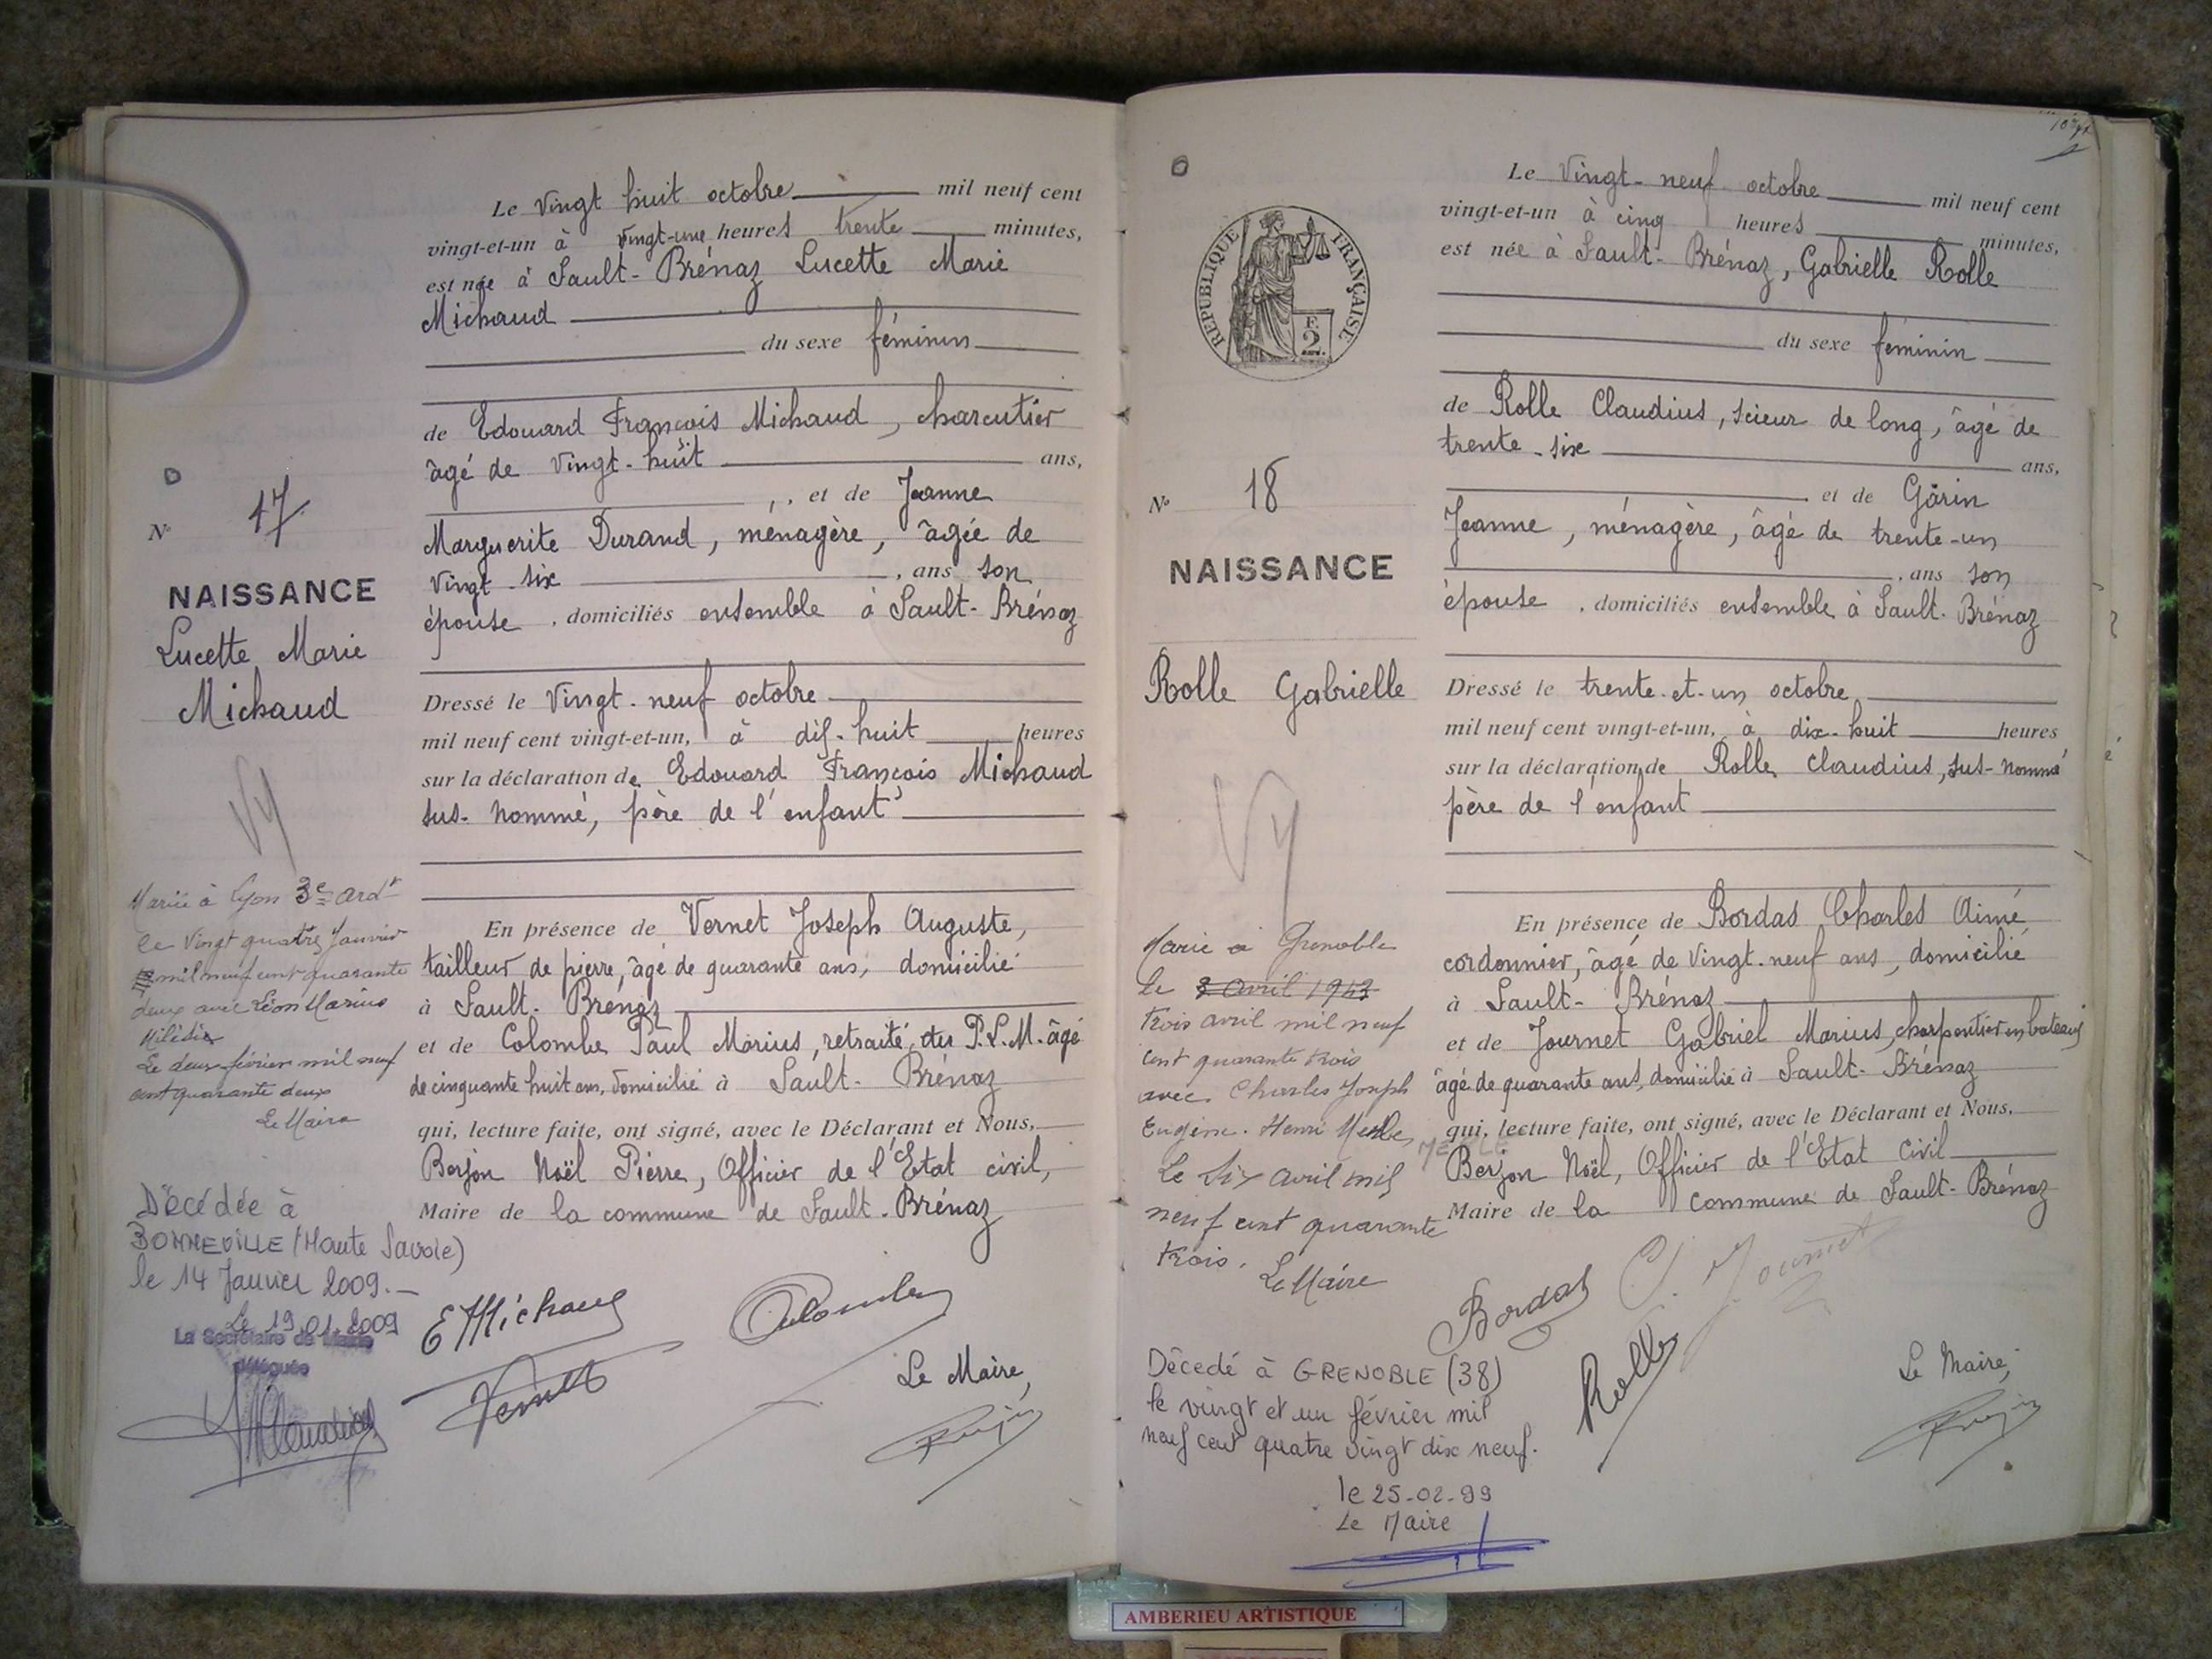 Le Vingt huit octobre mil neuf cent
vingt-et-un à vingt-une heures trente minutes,
est née à Sault-Brénaz Lucette Marie
Michaud
du sexe féminin
de Edouard François Michaud, charcutier
âgé de vingt-huit ans,
, et de Jeanne
Marguerite Durand, ménagère, âgée de
vingt-six , ans son
épouse , domiciliés ensemble à Sault-Brénaz
N° 17
NAISSANCE
Lucette Marie
Michaud
Dressé le Vingt-neuf octobre
mil neuf cent vingt-et-un, à dix-huit heures
sur la déclaration de Edouard François Michaud
sus-nommé, père de l'enfant
En présence de Vernet Joseph Auguste,
tailleur de pierre, âgé de quarante ans, domicilié
à Sault-Brénaz
et de Colombe Paul Marius, retraité du P.L.M. âgé
de cinquante huit ans, domicilié à Sault-Brénaz
qui, lecture faite, ont signé, avec le Déclarant et Nous,
Berjon Noël Pierre, Officier de l'Etat civil,
Maire de la commune de Sault-Brénaz
Mariée à Lyon 3e ardt
le Vingt quatre Janvier
mil neuf cent quarante
deux avec Léon Marius
Le deux février mil neuf
cent quarante deux
Le Maire
Décédée à
BONNEVILLE (Haute Savoie)
le 14 Janvier 2009.-
Le 19.01.2009
La Secrétaire de Mairie
déléguée
E Michaud
Colombe
Vernet
Le Maire,
Le Vingt-neuf octobre mil neuf cent
vingt-et-un à cinq heures minutes,
est née à Sault-Brénaz, Gabrielle Rolle
du sexe féminin
REPUBLIQUE FRANÇAISE
2 F.
de Rolle Claudius, scieur de long, âgé de
trente-six ans,
et de Garin
Jeanne, ménagère, âgé de trente-un
, ans son
épouse , domiciliés ensemble à Sault-Brénaz
N° 18
NAISSANCE
Rolle Gabrielle
Dressé le trente-et-un octobre
mil neuf cent vingt-et-un, à dix-huit heures
sur la déclaration de Rolle Claudius, sus-nommé
père de l'enfant
En présence de Bordas Charles Aimé
cordonnier, âgé de vingt-neuf ans, domicilié
à Sault-Brénaz
et de Journet Gabriel Marius, charpentier en bateaux
âgé de quarante ans, domicilié à Sault-Brénaz
qui, lecture faite, ont signé, avec le Déclarant et Nous,
Berjon Noël, Officier de l'Etat Civil
Maire de la commune de Sault-Brénaz
Marié à Grenoble
le 3 avril 1943
trois avril mil neuf
cent quarante trois
avec Charles Joseph
Eugène Henri
Le Six avril mil
neuf cent quarante
trois.
Le Maire
Bordas
Journet
Rolle
Le Maire,
Décedé à GRENOBLE (38)
le vingt et un février mil
neuf cent quatre vingt dix neuf.
le 25-02-99
Le Maire
AMBERIEU ARTISTIQUE